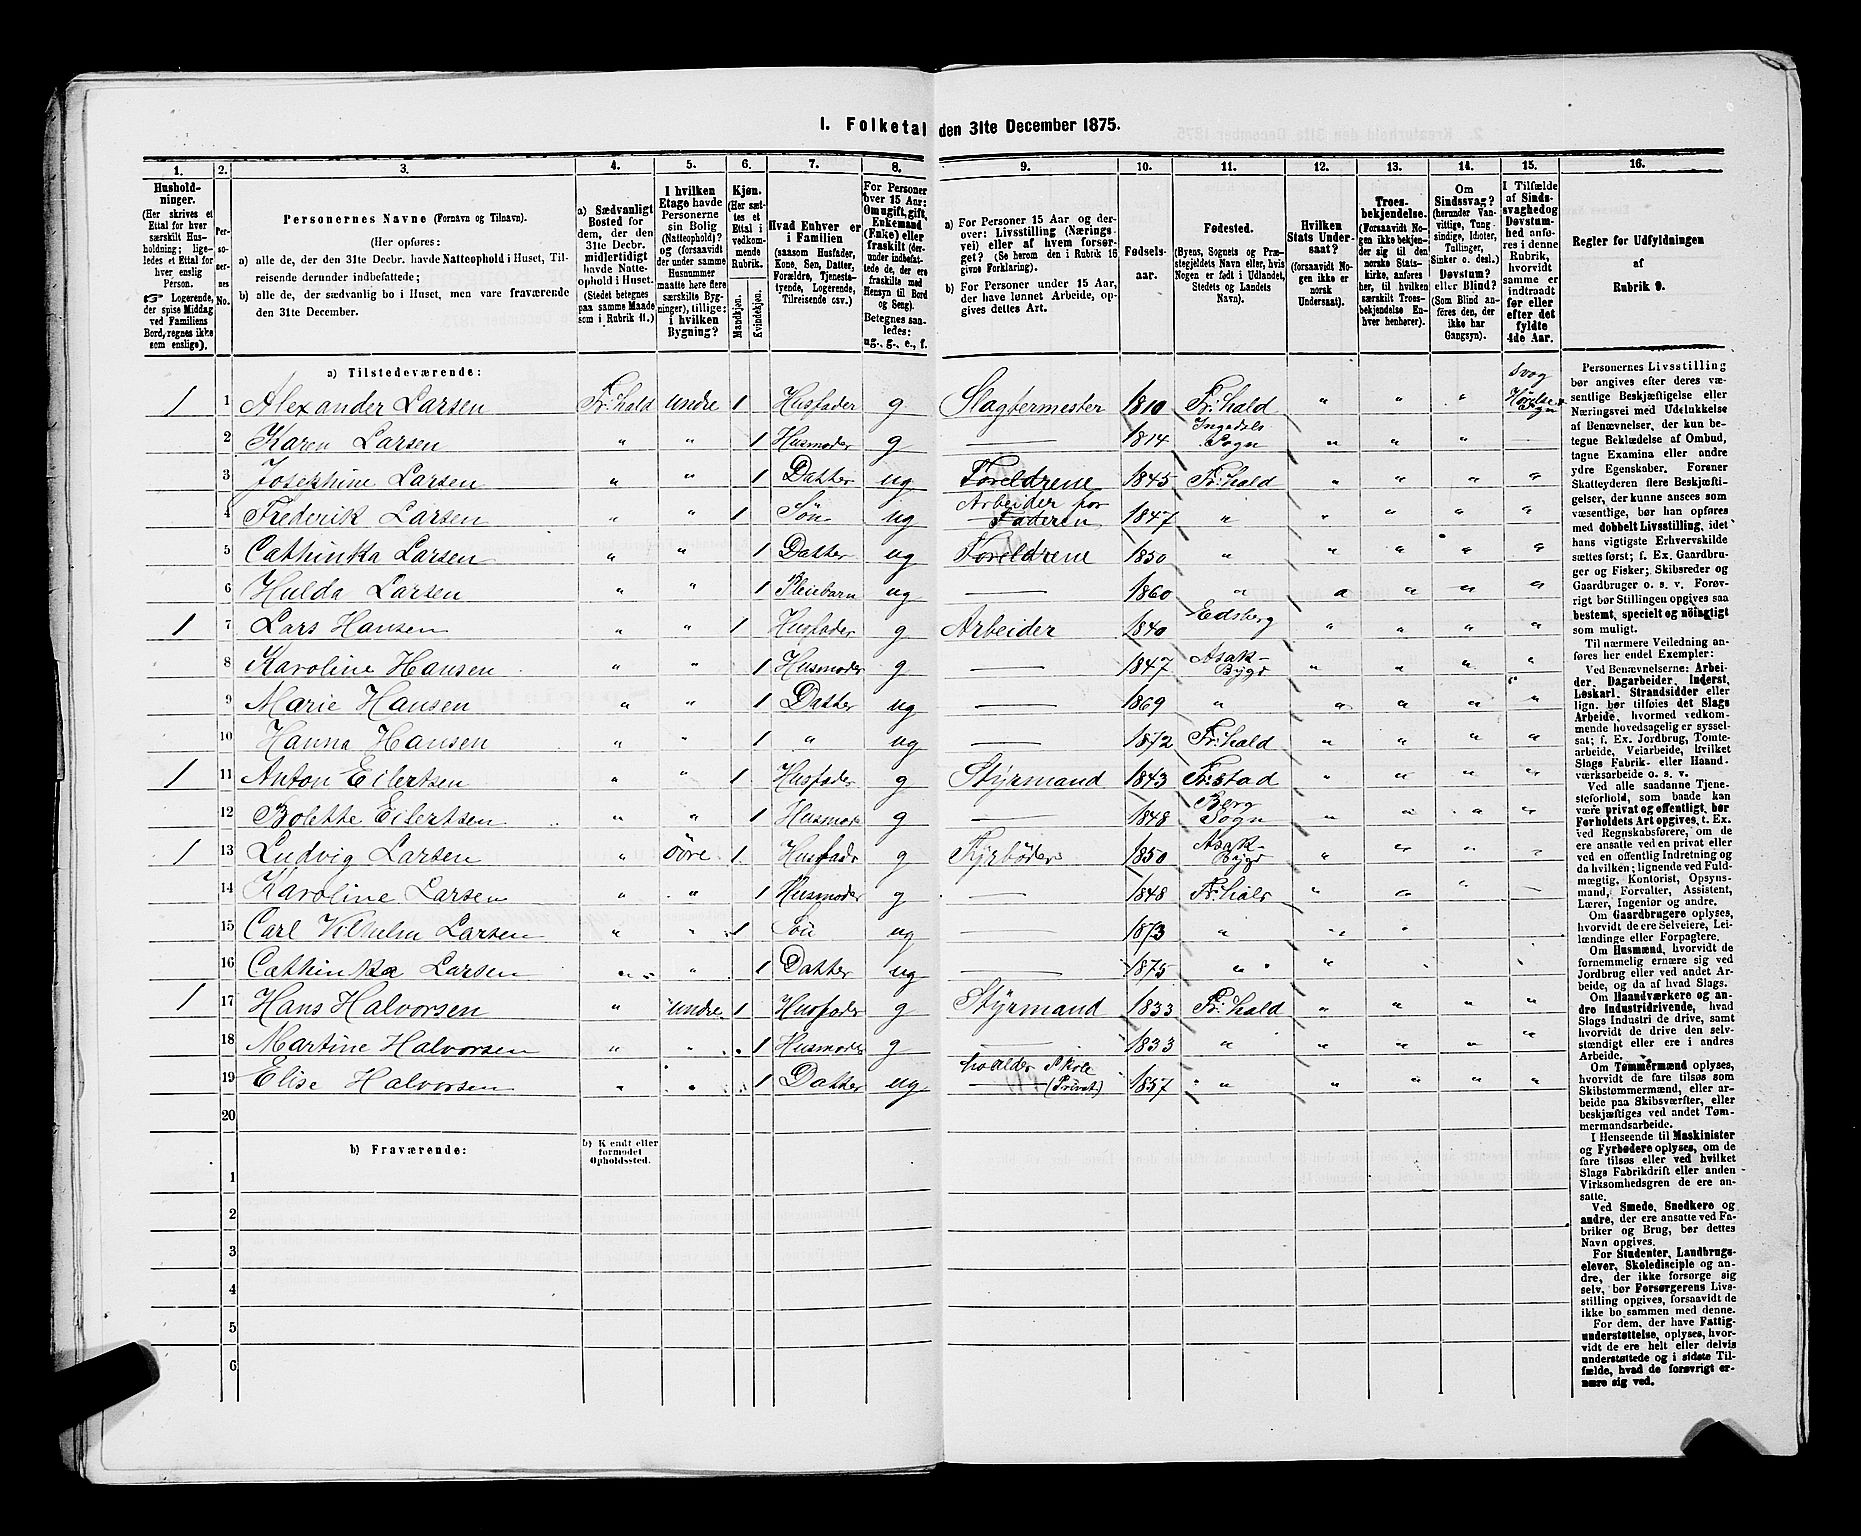 I. Folketal den 31te December 1875.
1. 2. 3. 4. 5. 6. 7. 8. 9. 10. 11. 12. 13. 14. 15. 16.
Hushold-
ninger.
(Her skrives et
Ettal for hver
særskilt Hus-
holdning; lige-
ledes et Ettal for
hver enslig
Person.
☞ Logerende,
der spise Middag
ved Familiens
Bord, regnes ikke
som enslige).
Per-
so-
ner-
nes
No.
Personernes Navne (Fornavn og Tilnavn).
(Her opføres:
a) alle de, der den 31te Decbr. havde Natteophold i Huset, Til-
reisende derunder indbefattede;
b) alle de, der sædvanlig bo i Huset, men vare fraværende
den 31te December.
a) Sædvanligt
Bosted for
dem, der den
31te Decbr.
midlertidigt
havde Natte-
ophold i Huset.
(Stedet betegnes
paa samme Maade
som i Rubrik 11.)
I hvilken
Etage havde
Personerne
sin Bolig
(Natteophold)?
og (forsaavidt
der under samme
Husnummer
maatte høre flere
særskilte Byg-
ninger), tillige:
i hvilken
Bygning?
Kjøn.
(Her sæt-
tes et
Ettal i
vedkom-
mende
Rubrik.
Mandkjøn.
Kvindekjøn.
Hvad Enhver er
i Familien
(saasom Husfader,
Kone, Søn, Datter,
Forældre, Tjeneste-
tyende, Logerende,
Tilreisende osv.)
For Personer
over 15 Aar:
Om ugift, gift,
Enkemand
(Enke) eller
fraskilt (der-
under indbefat-
tede de, der ere
fraskilte med
Hensyn til Bord
og Seng).
Betegnes saa-
ledes:
ug., g., e., f.
a) For Personer 15 Aar og der-
over: Livsstilling (Nærings-
vei) eller af hvem forsør-
get? (Se herom den i Rubrik 16
givne Forklaring).
b) For Personer under 15 Aar,
der have lønnet Arbeide, op-
gives dettes Art.
Fødsels-
aar.
Fødested.
(Byens, Sognets og Præ-
stegjeldets Navn eller, hvis
Nogen er født i Udlandet,
Stedets og Landets
Navn).
Hvilken
Stats Under-
saat?
(forsaavidt No-
gen ikke er
norsk
Undersaat).
Troes-
bekjendelse.
(Forsaavidt No-
gen ikke bekjen-
der sig til den
norske Stats-
kirke, anføres
her, til hvilken
særskilt Troes-
bekjendelse En-
hver henhører).
Om
Sindssvag?
(herunder Van-
vittige, Tung-
sindige, Idioter,
Tullinger,
Sinker o. desl.)
Døvstum?
eller Blind?
(Som Blind an-
føres den, der
ikke har
Gangsyn).
I Tilfælde
af Sinds-
svaghed og
Døvstum-
hed anfø-
res i denne
Rubrik,
hvorvidt
samme er
indtraadt
før eller
efter det
fyldte
4de Aar.
Regler for Udfyldningen
af
Rubrik 9.
a) Tilstedeværende:
1 1 Alexander Larsen Fr: hald undre 1 Husfader g Slagtermester 1810 Fr: hald " " " svag
2 Karen Larsen " " 1 Husmoder g — 1814 Ingedals Sogn " " "
3 Josephine Larsen " " 1 Datter ug Foreldrene 1845 Fr: hald " " " "
4 Frederik Larsen " " 1 Søn ug Arbeider for Faderen 1847 " " " " "
5 Cathinka Larsen " " 1 Datter ug Foreldrene 1850 " " " " "
6 Hulda Larsen " " 1 Pleiebarn ug — 1860 " " " " "
1 7 Lars Hansen " " 1 Husfader g Arbeider 1840 Edsberg " " " "
8 Karoline Hansen " " 1 Husmoder g — 1847 Asak- Bygd " " " "
9 Marie Hansen " " 1 Datter ug — 1869 " " " " "
10 Hanna Hansen " " 1 " ug — 1872 Fr: hald " " " "
1 11 Anton Eilertsen " " 1 Husfader g Styrmand 1843 Fr: stad " " " "
12 Bolette Eilertsen " " 1 Husmoder g — 1848 Berg Sogn " " " "
1 13 Ludvig Larsen " øvre 1 Husfadr g Fyrbøder 1850 Asak- Bygd " " " "
14 Karoline Larsen " " 1 Husmoder g — 1848 Fr: hald " " "
15 Carl Vilhelm Larsen " " 1 Søn ug — 1873 " " "
16 Cathinka Larsen " " 1 Datter ug — 1875 " "
1 17 Hans Halvorsen " undre 1 Husfader g Styrmand 1833 Fr: hald " " " "
18 Martine Halvorsen " " 1 Husmoder g — 1833 " " " " "
19 Elise Halvorsen " " 1 Datter ug holder Skole (Privat) 1857 " " " " "
20
b) Fraværende:
b) Kendt eller
formodet
Opholdssted.
1
2
3
4
5
6
Personernes Livsstilling
bør angives efter deres væ-
sentlige Beskjæftigelse eller
Næringsvei med Udelukkelse
af Benævnelser, der kun be-
tegne Beklædelse af Ombud,
tagne Examina eller andre
ydre Egenskaber. Forener
Skatteyderen flere Beskjæfti-
gelser, der kunne ansees som
væsentlige, bør han opføres
med dobbelt Livsstilling, idet
hans vigtigste Erhvervskilde
sættes først; f. Ex. Gaardbru-
ger og Fisker; Skibsreder og
Gaardbruger o. s. v. Forøv-
rigt bør Stillingen opgives saa
bestemt, specielt og nøiagtigt
som muligt.
Til nærmere Veiledning an-
føres her endel Exempler:
Ved Benævnelserne: Arbei-
der, Dagarbeider, Inderst,
Løskarl, Strandsidder eller
lign. bør tilføies det Slags
Arbeide, hvormed vedkom-
mende hovedsagelig er syssel-
sat; f. Ex. Jordbrug, Tomte-
arbeide, Veiarbeide, hvilket
Slags Fabrik- eller Haand-
værksarbeide o. s. v.
Ved alle saadanne Tjene-
steforhold, som baade kan
være privat og offentligt, bør
Forholdets Art opgives, t. Ex.
ved Regnskabsførere, om de
ere ansatte ved en privat eller
ved en offentlig Indretning og
da hvilken; lignende ved Fuld-
mægtig, Kontorist, Opsyns-
mand, Forvalter, Assistent,
Lærer, Ingeniør og andre.
Om Gaardbrugere oplyses,
hvorvidt de ere Selveiere, Lei-
lændinge eller Forpagtere.
Om Husmænd, hvorvidt de
fornemmelig ernære sig ved
Jordbrug eller ved andet Ar-
beide, og da af hvad Slags.
Om Haandværkere og an-
dre Industridrivende, hvad
Slags Industri de drive, samt
hvorvidt de drive den selv-
stændigt eller ere i andres
Arbeide.
Om Tømmermænd oplyses,
hvorvidt de fare tilsøs som
Skibstømmermænd, eller ar-
beide paa Skibsværfter, eller
beskjæftiges ved andet Tøm-
mermandsarbeide.
I Henseende til Maskinister
og Fyrbødere oplyses, om de
fare tilsøs eller ved hvilket
Slags Fabrikdrift eller anden
Virksomhedsgren de ere an-
satte.
Ved Smede, Snedkere og
andre, der ere ansatte ved Fa-
briker og Brug, bør dettes
Navn opgives.
For Studenter, Landbrugs-
elever, Skoledisciple og an-
dre, der ikke forsørge sig
selv, bør Forsørgerens Livs-
stilling opgives, forsaavidt de
ikke bo sammen med denne.
For dem, der have Fattig-
understøttelse, oplyses, hvor-
vidt de ere helt eller delvis
understøttede og i sidste Til-
fælde, hvad de forøvrigt er-
nære sig ved.